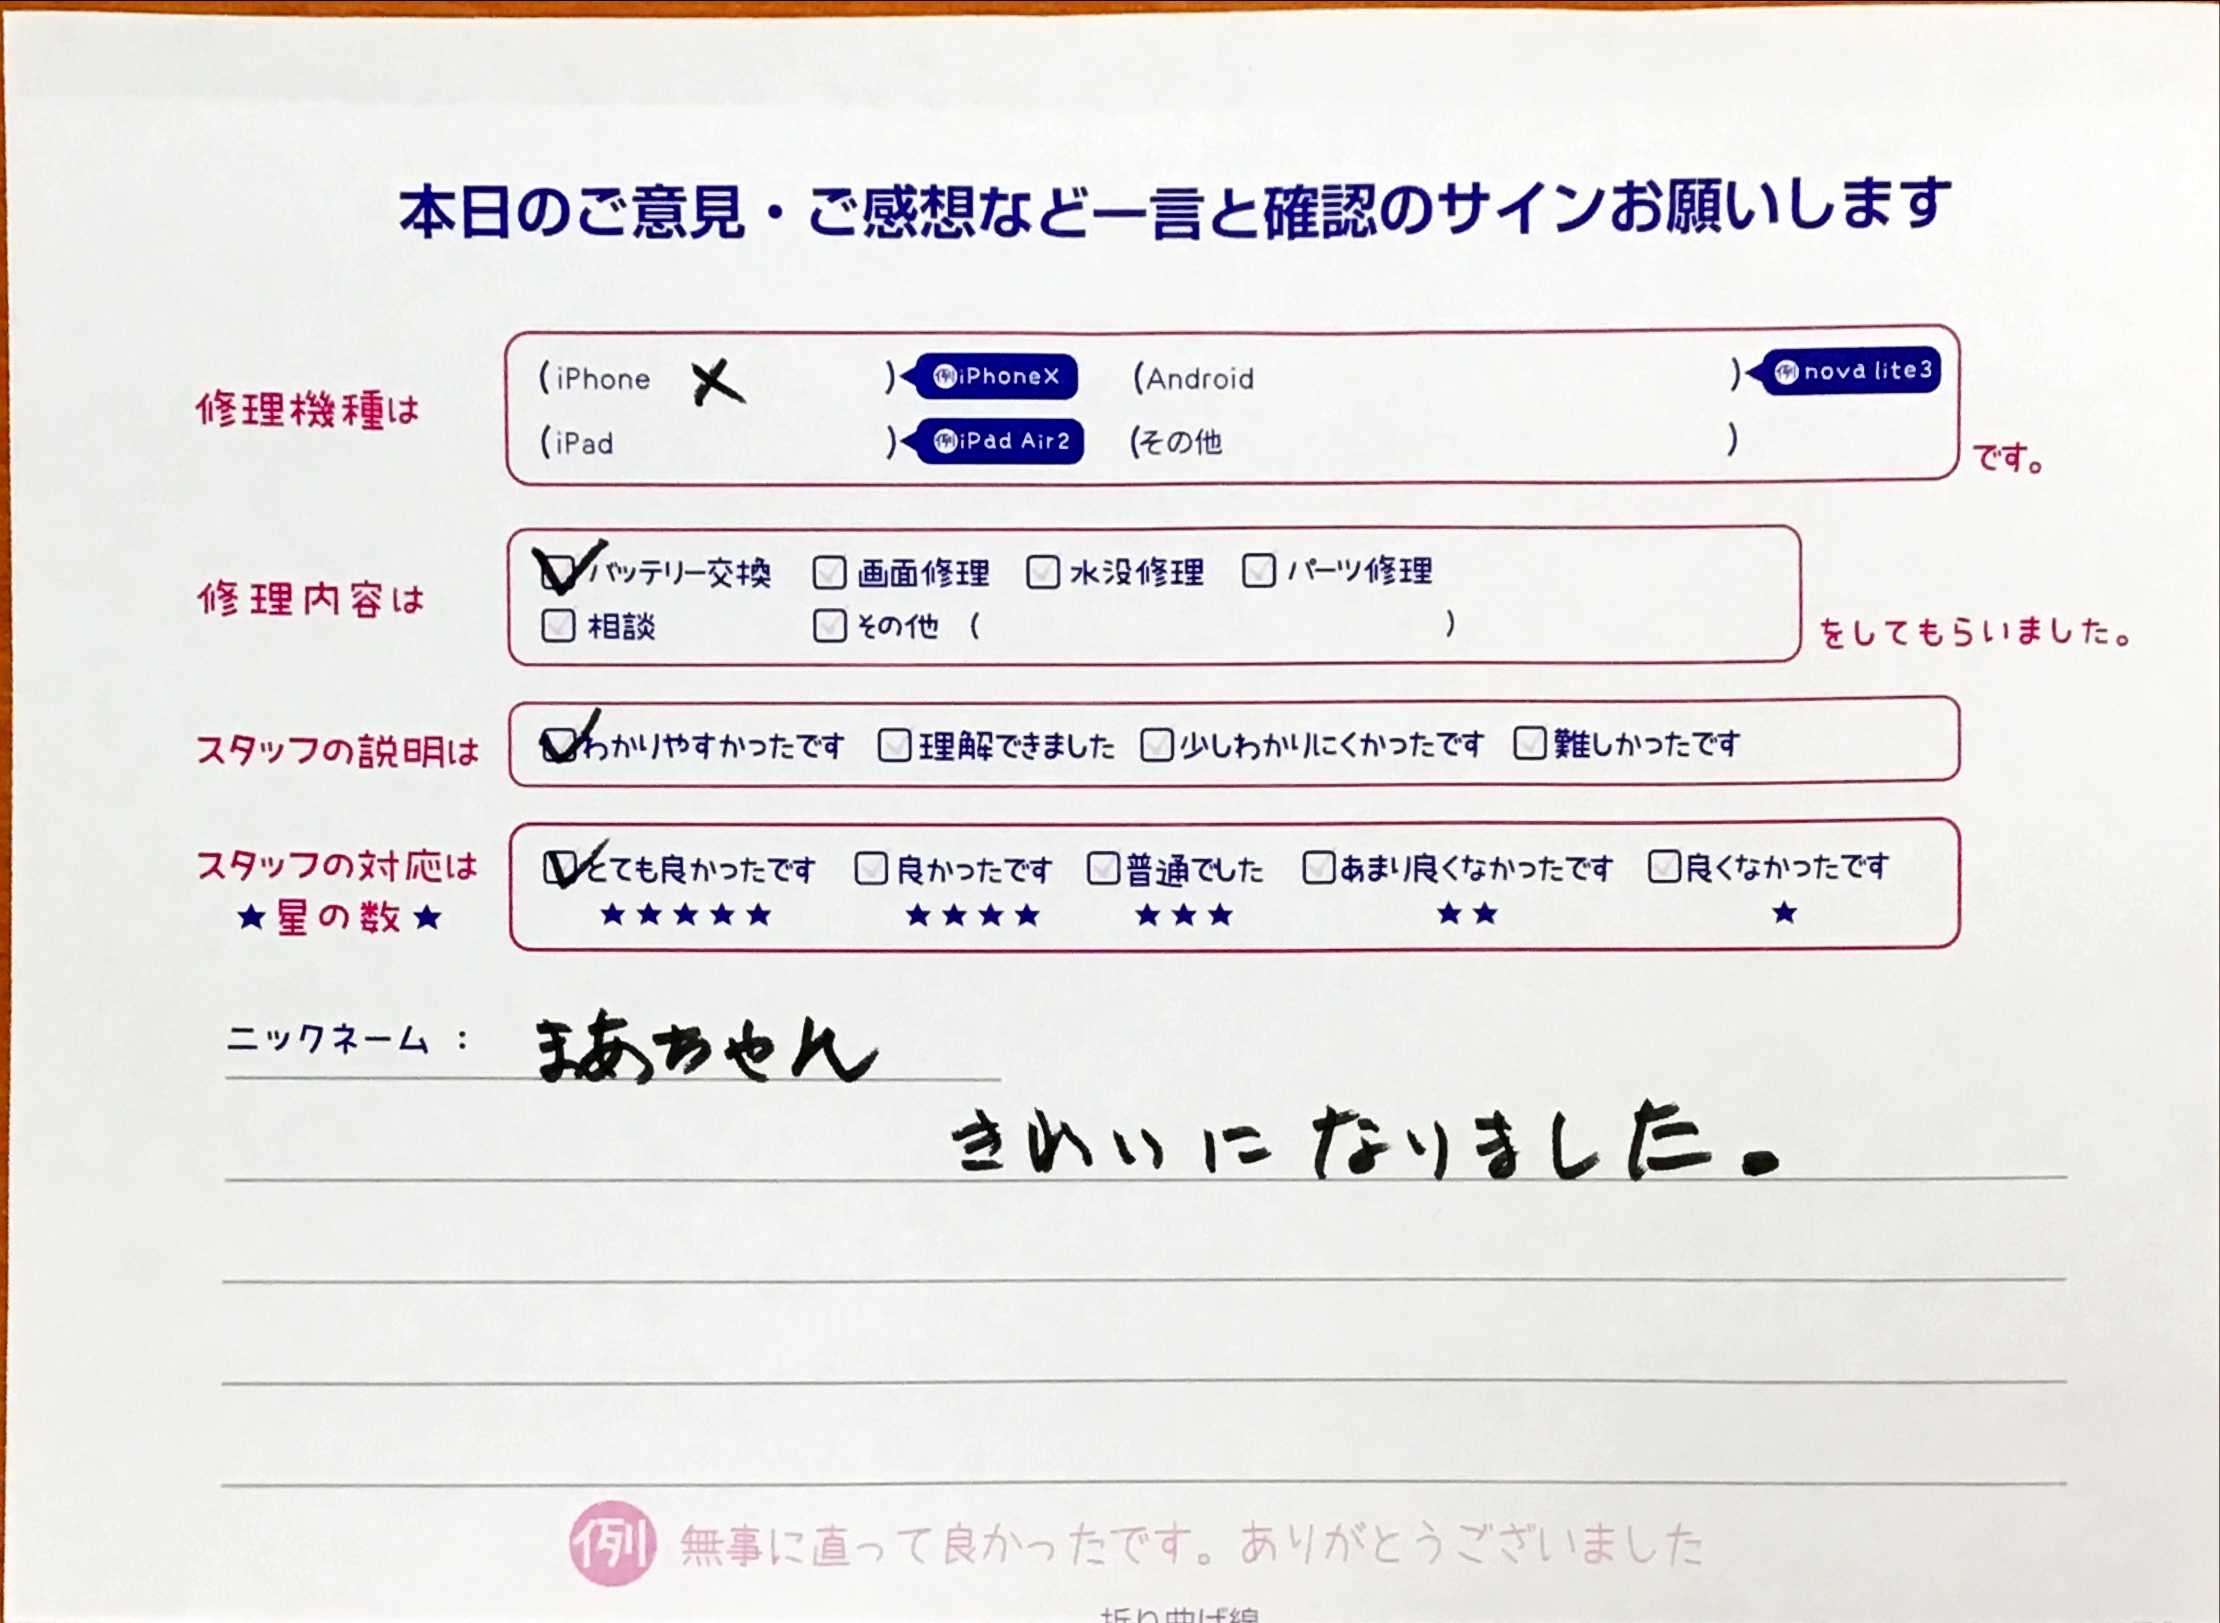 本日のご意見・ご感想など一言と確認のサインお願いします
修理機種は (iPhone X ) 例iPhoneX (Android ) 例nova lite3
(iPad ) 例iPad Air2 (その他 ) です。
修理内容は ☑バッテリー交換 □画面修理 □水没修理 □パーツ修理
□相談 □その他 ( ) をしてもらいました。
スタッフの説明は ☑わかりやすかったです □理解できました □少しわかりにくかったです □難しかったです
スタッフの対応は ☑とても良かったです □良かったです □普通でした □あまり良くなかったです □良くなかったです
★星の数★ ★★★★★ ★★★★ ★★★ ★★ ★
ニックネーム : まあちゃん
きれいになりました。
例 無事に直って良かったです。ありがとうございました
折り曲げ線